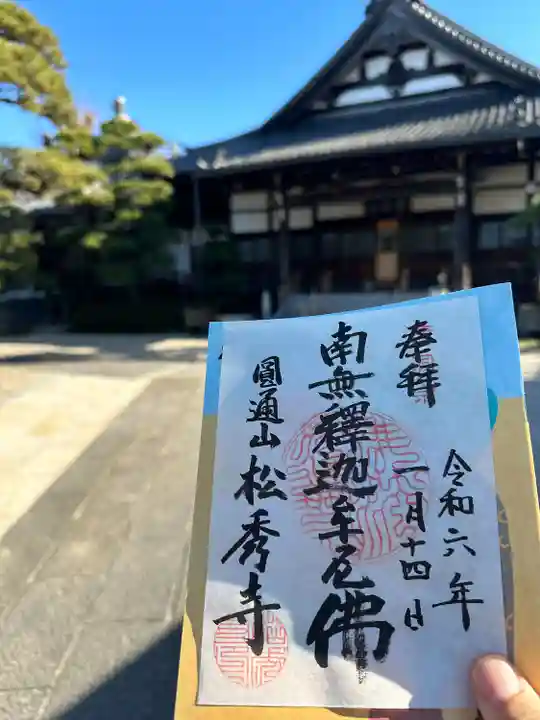 奉拜
令和六年
一月十四日
南無釋迦牟尼佛
圓通山 松秀寺